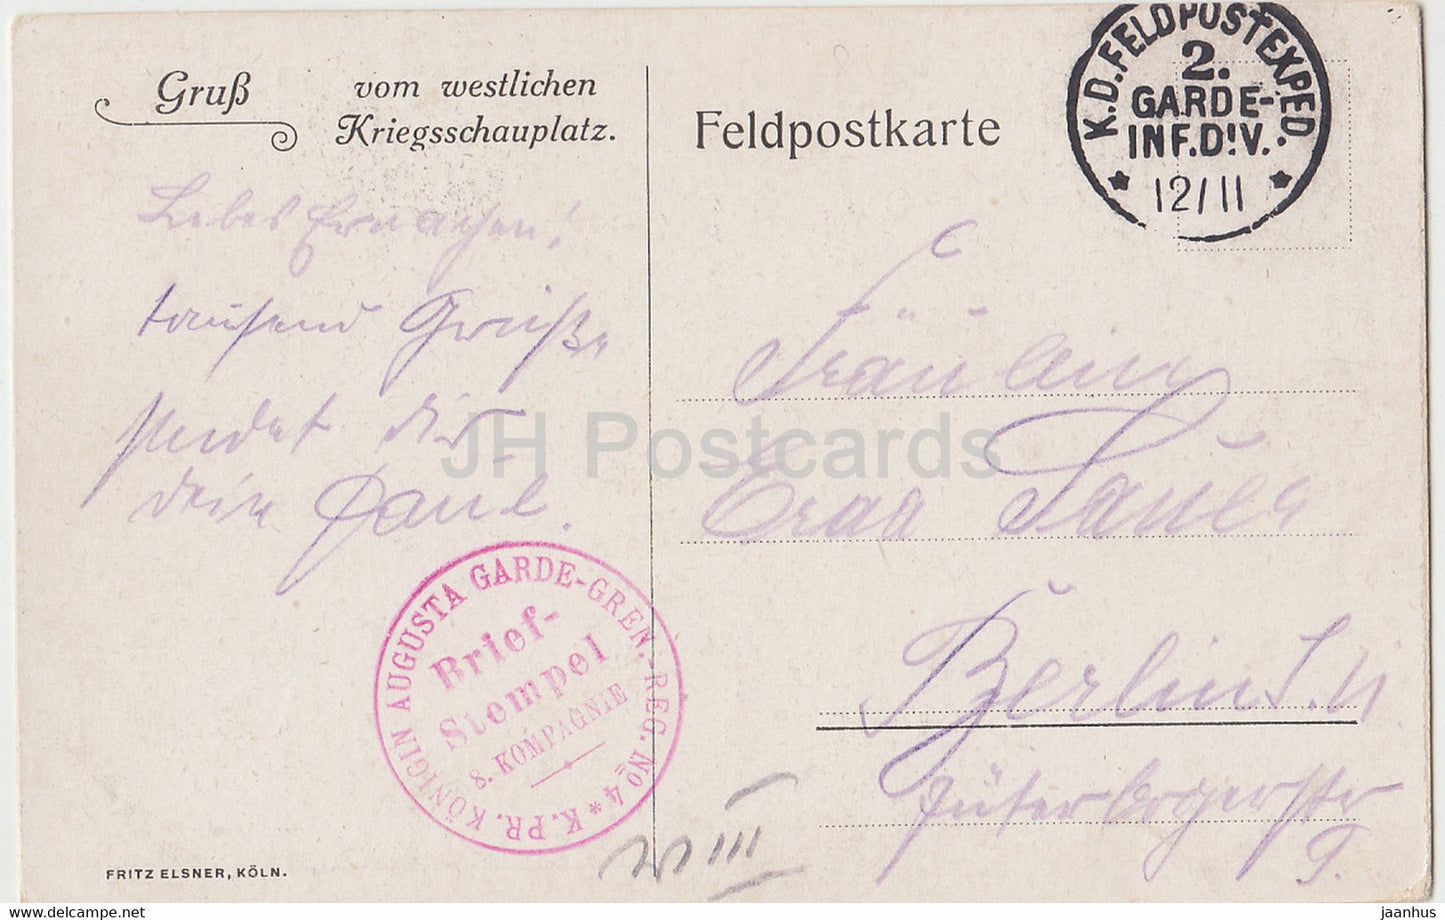 Gruß vom westlichen
Kriegsschauplatz.
Feldpostkarte
K.D. FELDPOSTEXPED.
2.
GARDE-
INF.DIV.
* 12/11 *
tausend Grüße
sendet dir
dein Paul.
Fräulein
Berlin S.W
Jüterbogerstr
9.
K. PR. KÖNIGIN AUGUSTA GARDE-GREN.-REG. No 4 *
Brief-
Stempel
8. KOMPAGNIE
III
FRITZ ELSNER, KÖLN.
JH Postcards
www.delcampe.net
jaanhus